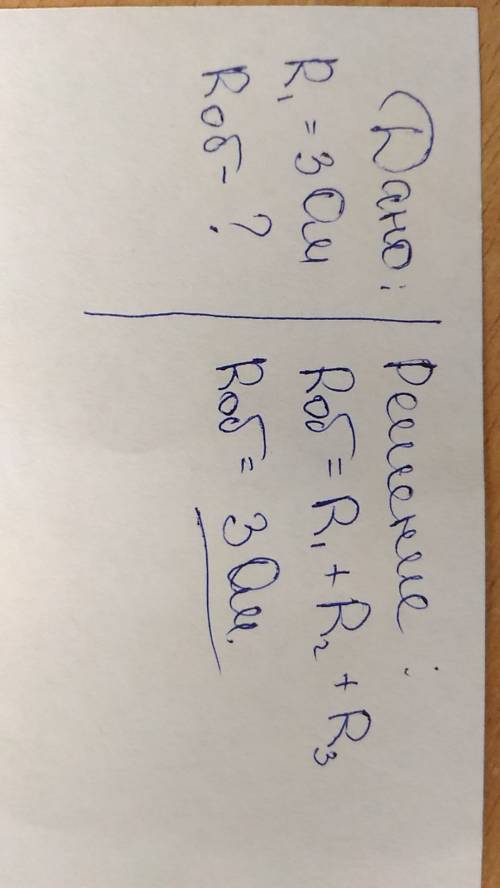 Дано:
R₁ = 3 Ом
Rоб - ?
Решение:
Rоб = R₁ + R₂ + R₃
Rоб = 3 Ом.